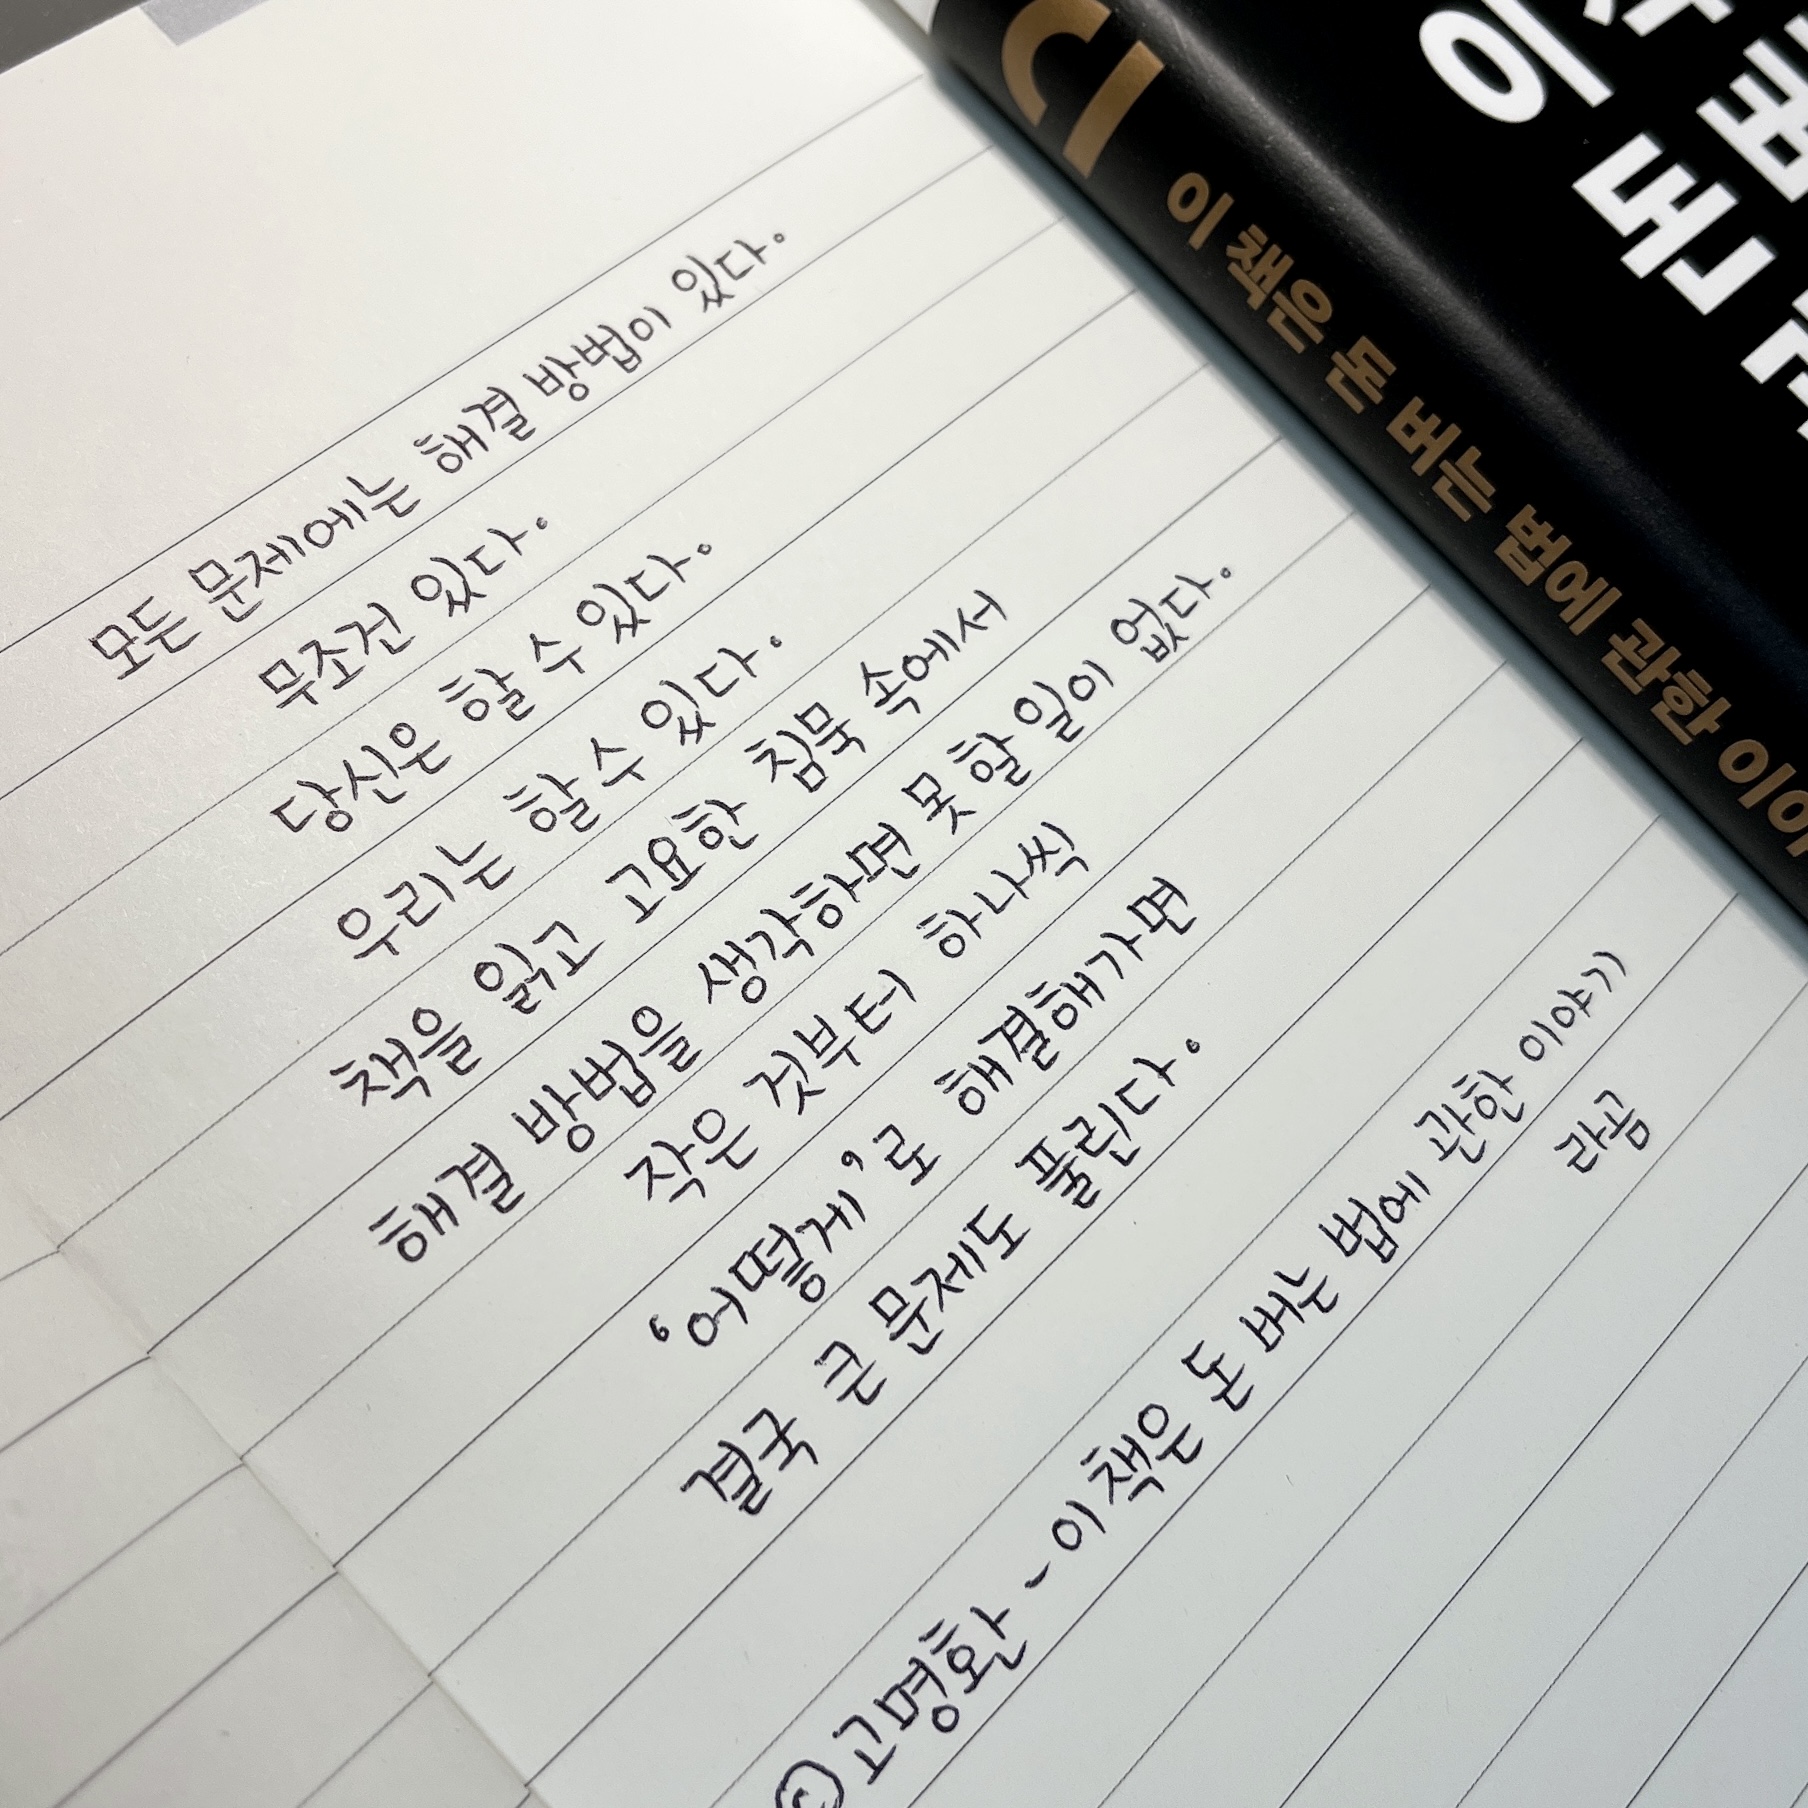 모든 문제에는 해결 방법이 있다.
무조건 있다.
당신은 할 수 있다.
우리는 할 수 있다.
책을 읽고 고요한 침묵 속에서
해결 방법을 생각하면 못 할 일이 없다.
작은 것부터 하나씩
'어떻게'로 해결해가면
결국 큰 문제도 풀린다.
ⓒ고명환 - 이 책은 돈 버는 법에 관한 이야기
라곰
이 책은 돈 버는 법에 관한 이야